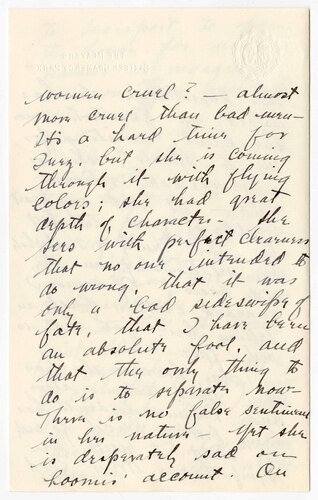 women cruel? — almost
more cruel than bad men —
It's a hard time for
Inez, but she is coming
through it with flying
colors; she had great
depth of character — she
sees with perfect clearness
that no one intended to
do wrong, that it was
only a bad sideswipe of
fate, that I have been
an absolute fool, and
that the only thing to
do is to separate now —
There is no false sentiment
in her nature — Yet she
is desperately sad on
Loomis' account. On